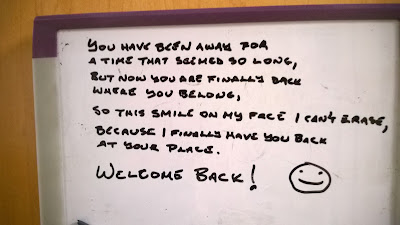 YOU HAVE BEEN AWAY FOR
A TIME THAT SEEMED SO LONG,
BUT NOW YOU ARE FINALLY BACK
WHERE YOU BELONG,
SO THIS SMILE ON MY FACE I CAN'T ERASE,
BECAUSE I FINALLY HAVE YOU BACK
AT YOUR PLACE.
WELCOME BACK!